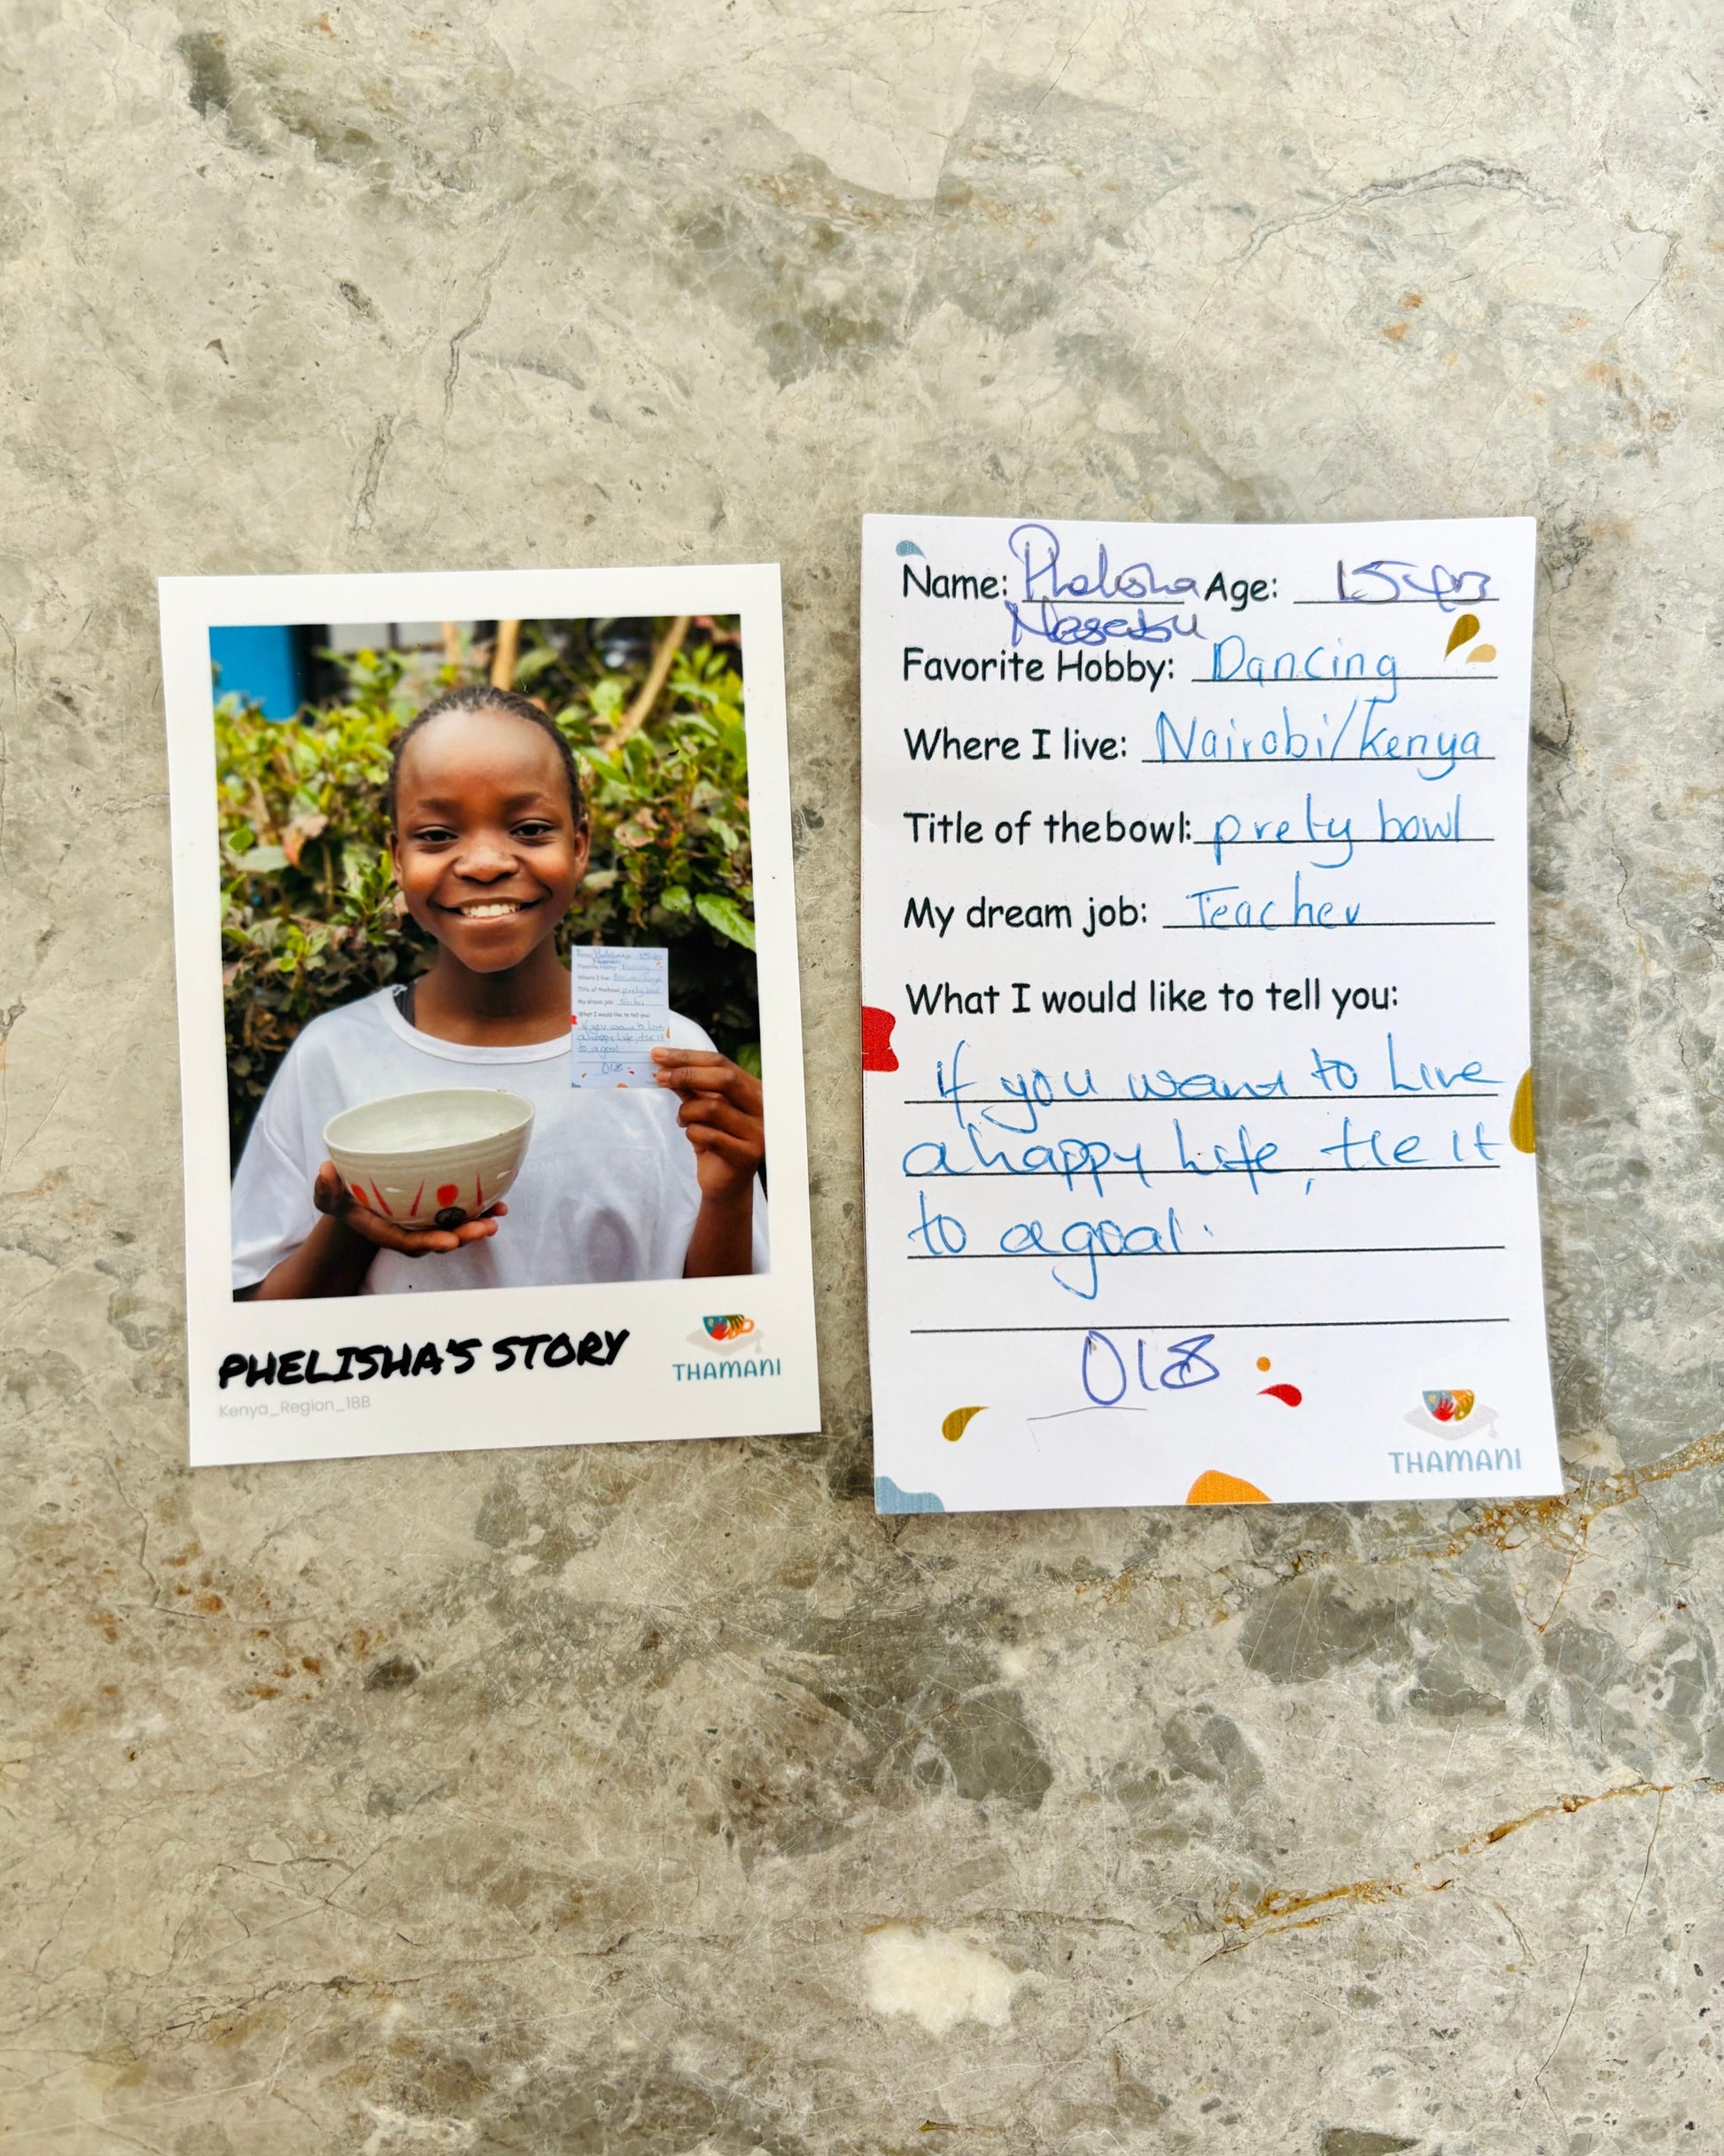 PHELISHA'S STORY
THAMANI
Kenya_Region_18B
Name: Phelisha Age: 15 yrs
Favorite Hobby: Dancing
Where I live: Nairobi/kenya
Title of the bowl: prety bowl
My dream job: Teacher
What I would like to tell you:
if you want to Live
a happy Life, tie it
to a goal.
018
THAMANI